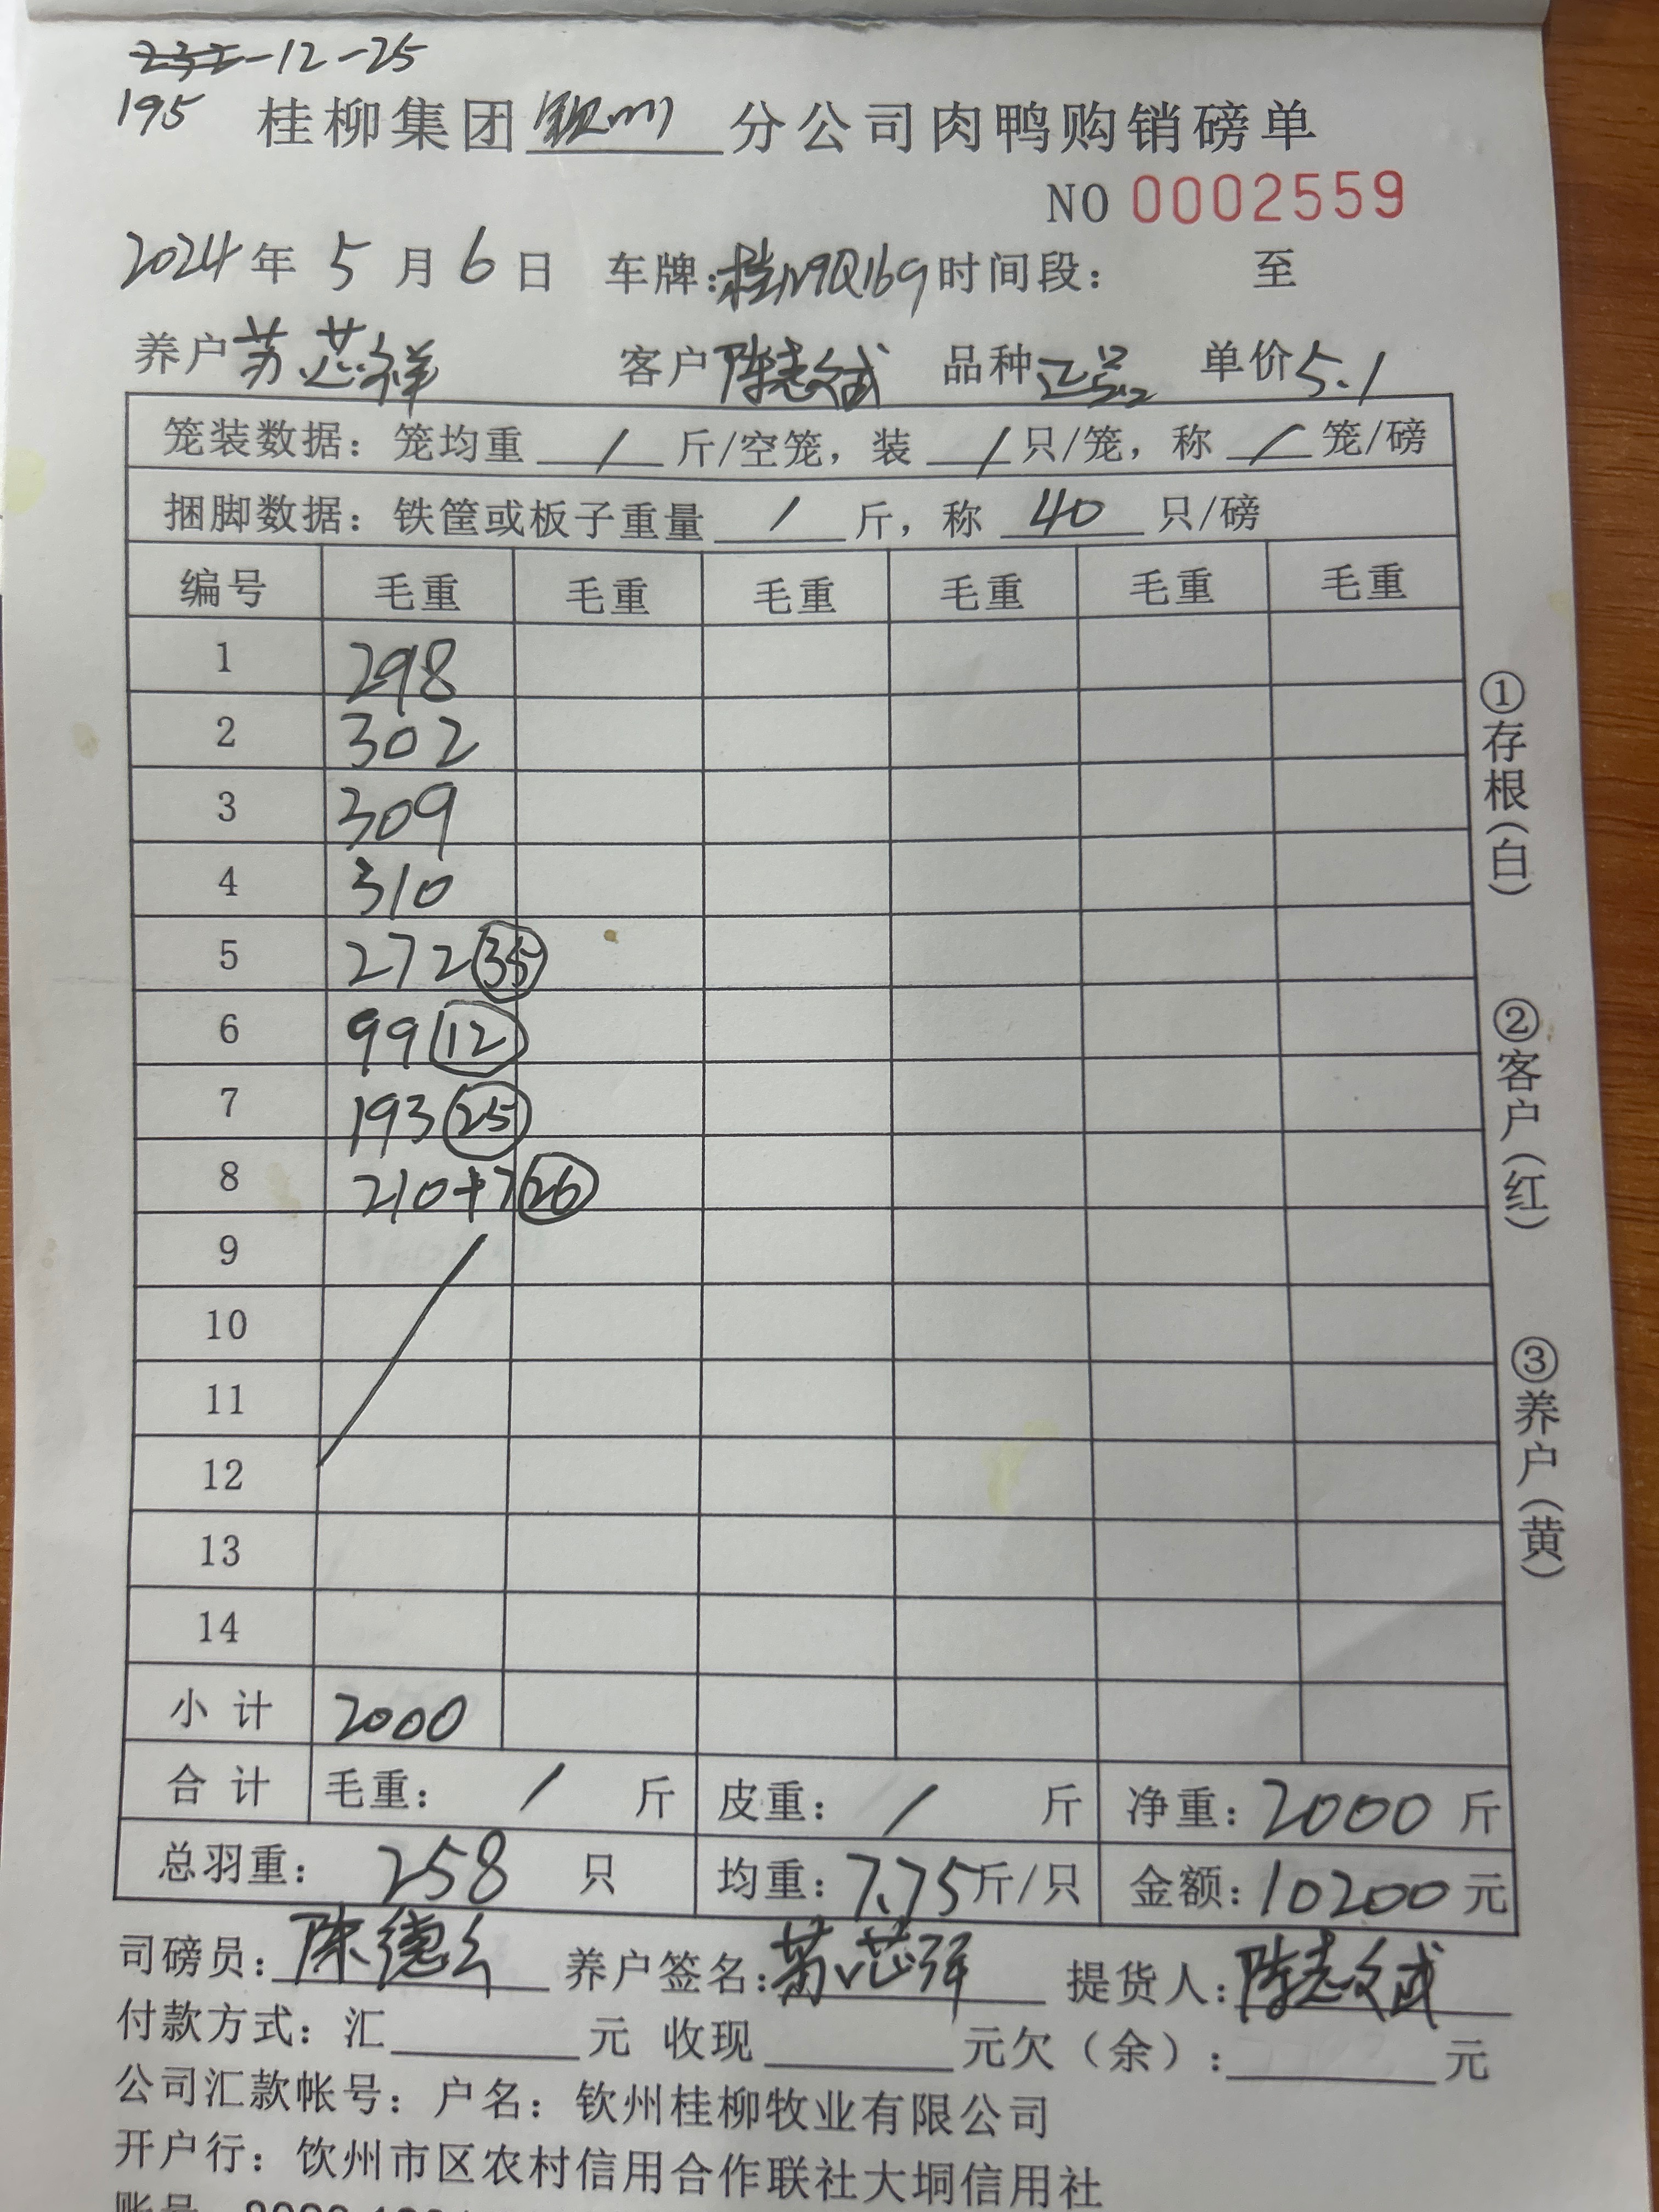 235-12-25
195 桂柳集团钦州分公司肉鸭购销磅单
NO 0002559
2024年5月6日 车牌:桂N9Q169时间段: 至
养户苏芯祥 客户陈志斌 品种正品 单价5.1
笼装数据：笼均重 / 斤/空笼，装 / 只/笼，称 / 笼/磅
捆脚数据：铁筐或板子重量 / 斤，称 40 只/磅
编号 毛重 毛重 毛重 毛重 毛重 毛重
1 298
2 302
3 309
4 310
5 272 35
6 99 12
7 193 25
8 210+7 26
9
10
11
12
13
14
小计 2000
合计 毛重： / 斤 皮重： / 斤 净重：2000斤
总羽重： 258 只 均重：7.75斤/只 金额：10200元
司磅员：陈德 养户签名：苏芯祥 提货人：陈志斌
付款方式：汇 元 收现 元欠（余）： 元
公司汇款帐号：户名：钦州桂柳牧业有限公司
开户行：饮州市区农村信用合作联社大垌信用社
账号
①存根（白）
②客户（红）
③养户（黄）